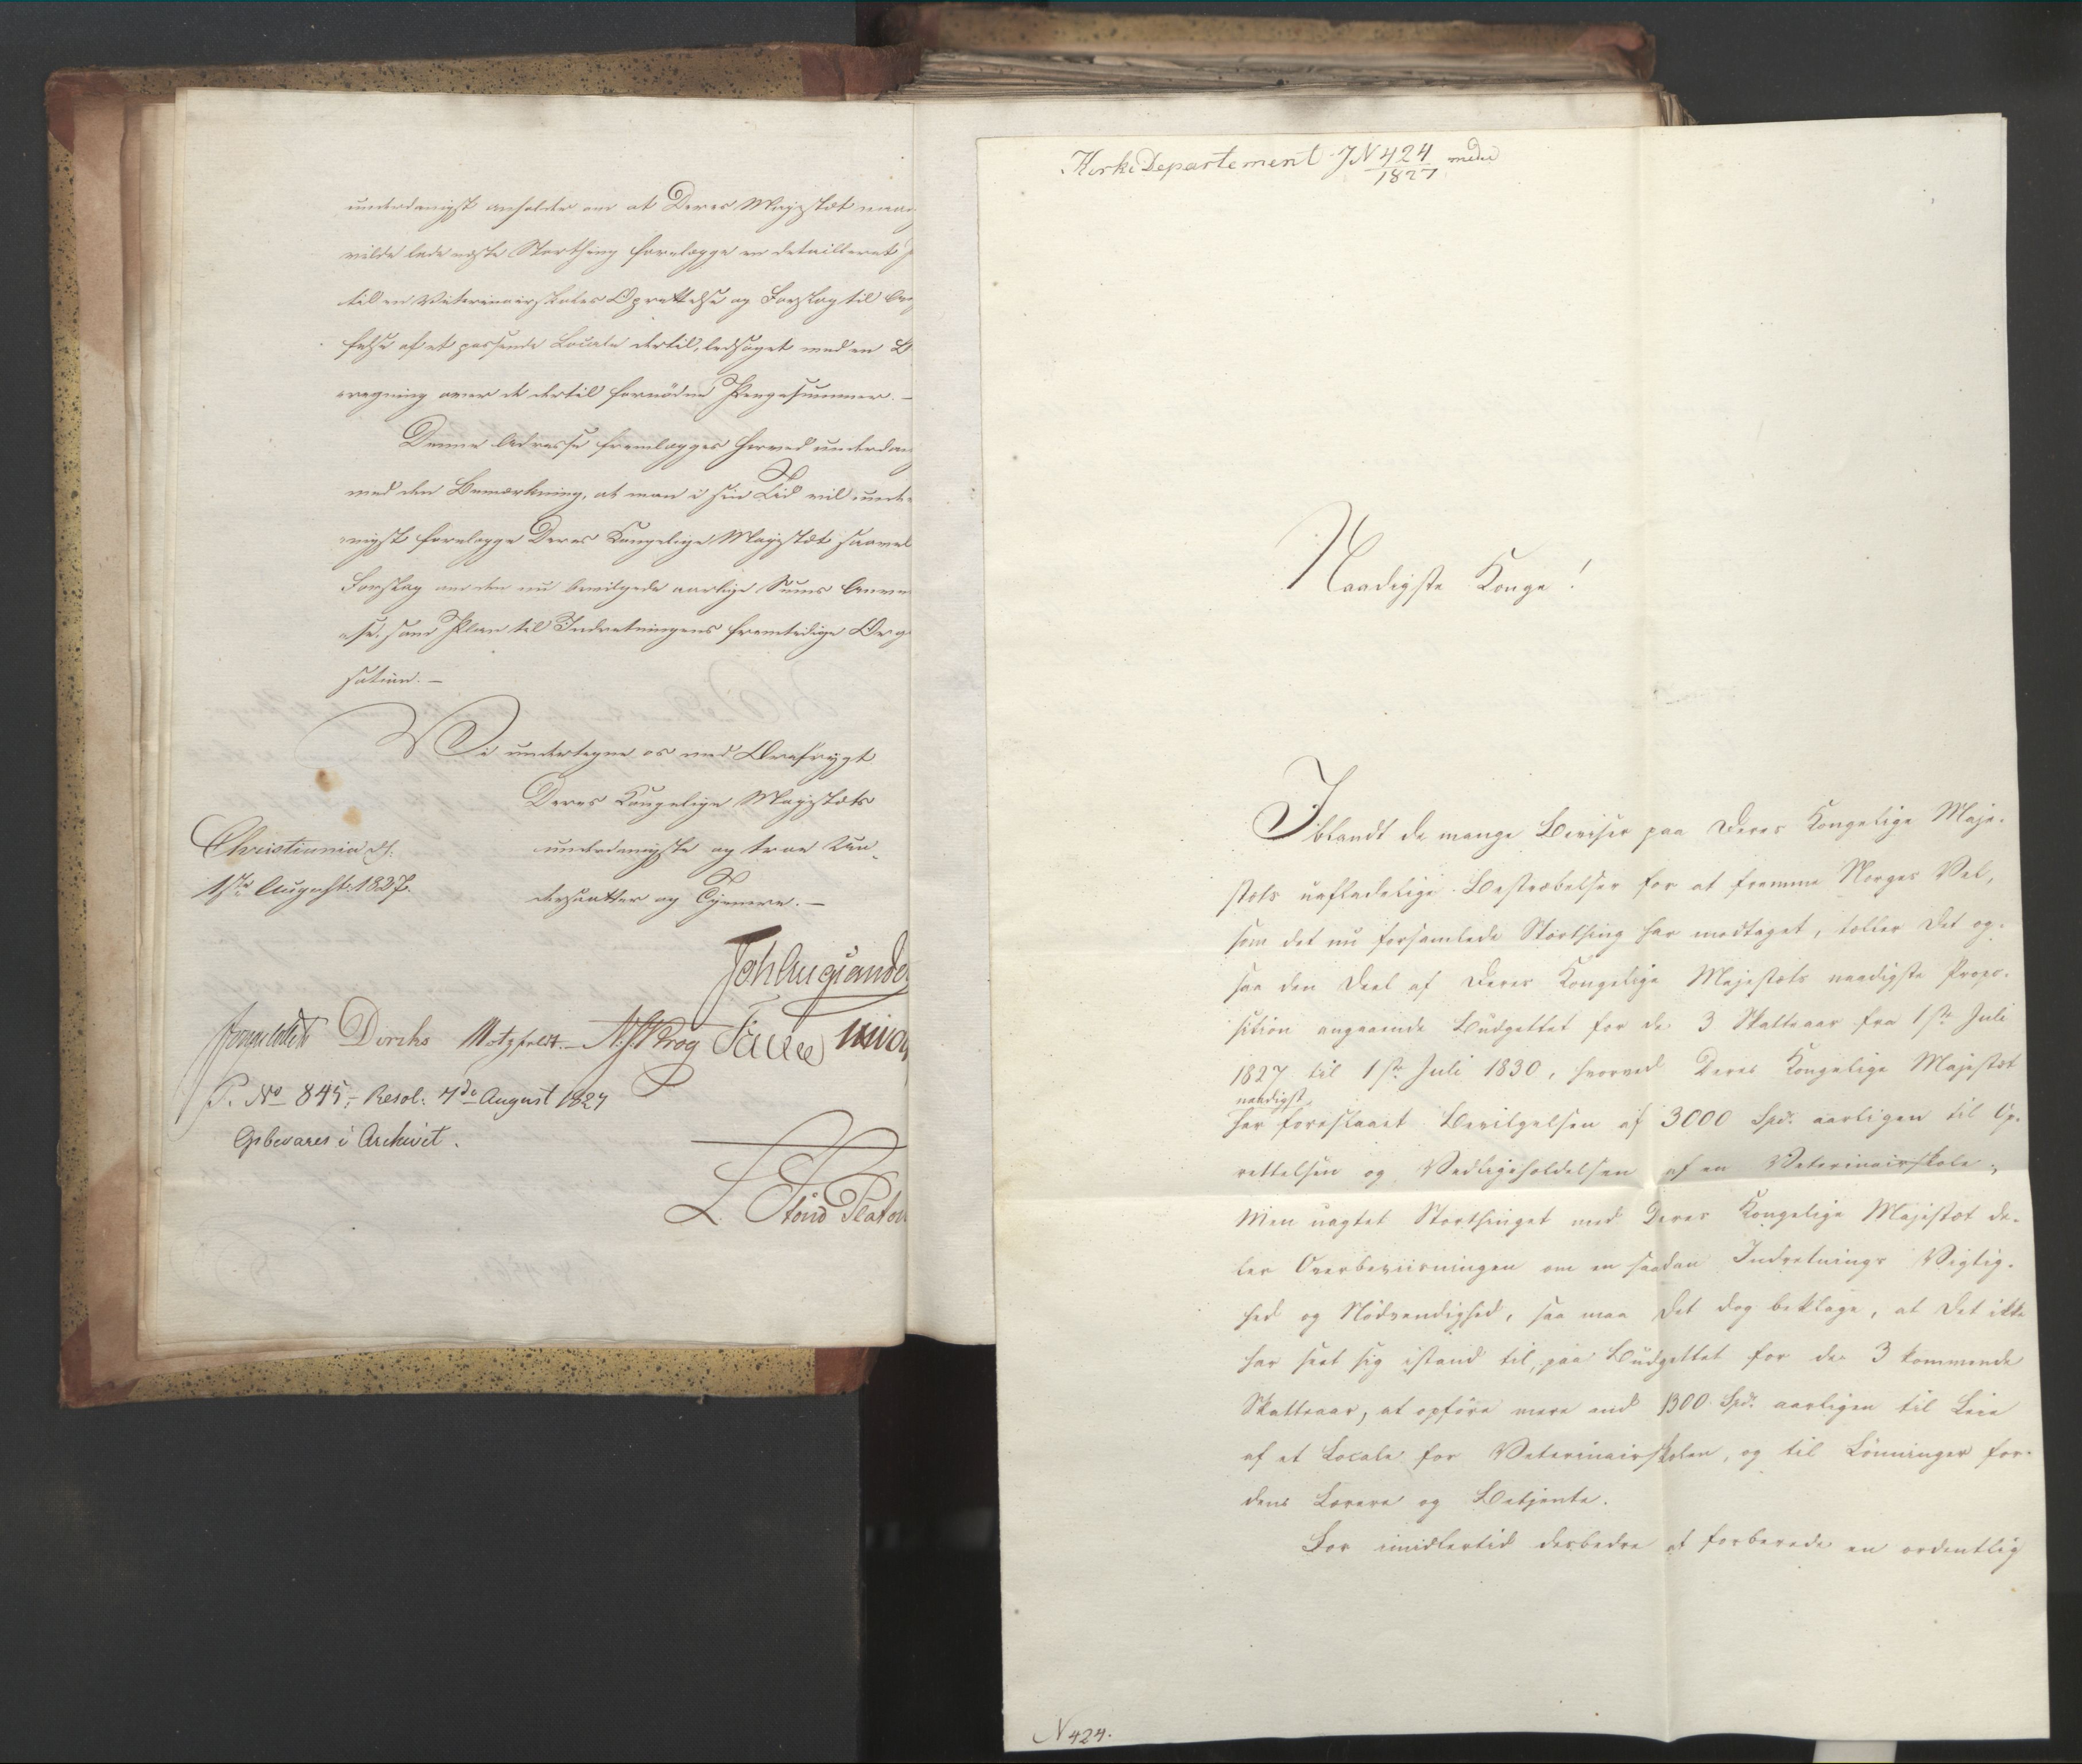 underdanigst anholdes om at Deres Majestæt naa
vilde lade næste Storthing forelægge en detailleret P
til en Veterinairskoles Oprettelse og Forslag til An
felse af et passende Locale dertil, ledsaget med en B
regning over de dertil fornödne Pengesummer. –
Denne Adresse fremlægges herved underdan
med den Bemærkning, at man i sin Tid vil unde
nigst forelægge Deres Kongelige Majestæt saavel
Forslag om den nu bevilgede aarlige Sums Anven
else, som Plan til Indretningens fremtidige Org
sation. –
Vi undertegne os med Ærefrygt
Deres Kongelige Majestæts
underdanigste og troe Un-
dersaatter og Tjenere. –
Christiania d.
1ste August 1827.
Collett Diriks Motzfeldt. Krog
P. No 845, Resol: 7de August 1827
Opbevares i Archivet.
L. Stoud Platou
Kirke Departement J N 424 1827
Naadigste Konge!
Iblandt de mange Beviser paa Deres Kongelige Maje-
stæts uafladelige Bestræbelser for at fremme Norges Vel,
som det nu forsamlede Storthing har modtaget, tæller det og-
saa den Deel af Deres Kongelige Majestæts naadigste Propo-
sition angaaende Büdgettet for de 3 Skatteaar fra 1ste Juli
1827 til 1ste Juli 1830, hvorved Deres Kongelige Majestæt
naadigst
har foreslaaet Bevilgelsen af 3000 Spd. aarligen til Op-
rettelsen og Vedligeholdelsen af en Veterinairskole.
Men uagtet Storthinget med Deres Kongelige Majestæt de-
ler Overbeviisningen om en saadan Indretnings Vigtig-
hed og Nödvendighed, saa maa det dog beklage, at det ikke
har seet sig istand til, paa Büdgettet for de 3 kommende
Skatteaar, at opföre mere end 1300 Spd. aarligen til Leie
af et Locale for Veterinairskolen, og til Lönninger for
dens Lærere og Betjente.
For imidlertid desbedre at forberede en ordentlig
N 424.